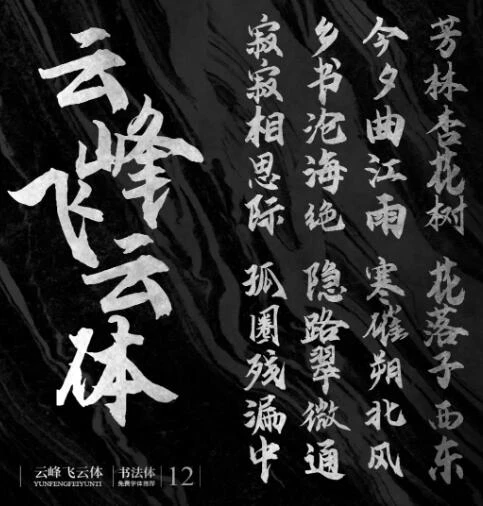 云峰飞云体
芳林杏花树 花落子西东
今夕曲江雨 寒催朔北风
乡书沧海绝 隐路翠微通
寂寂相思际 孤圈残漏中
云峰飞云体
YUNFENGFEIYUNTI
书法体
免费字体推荐
12